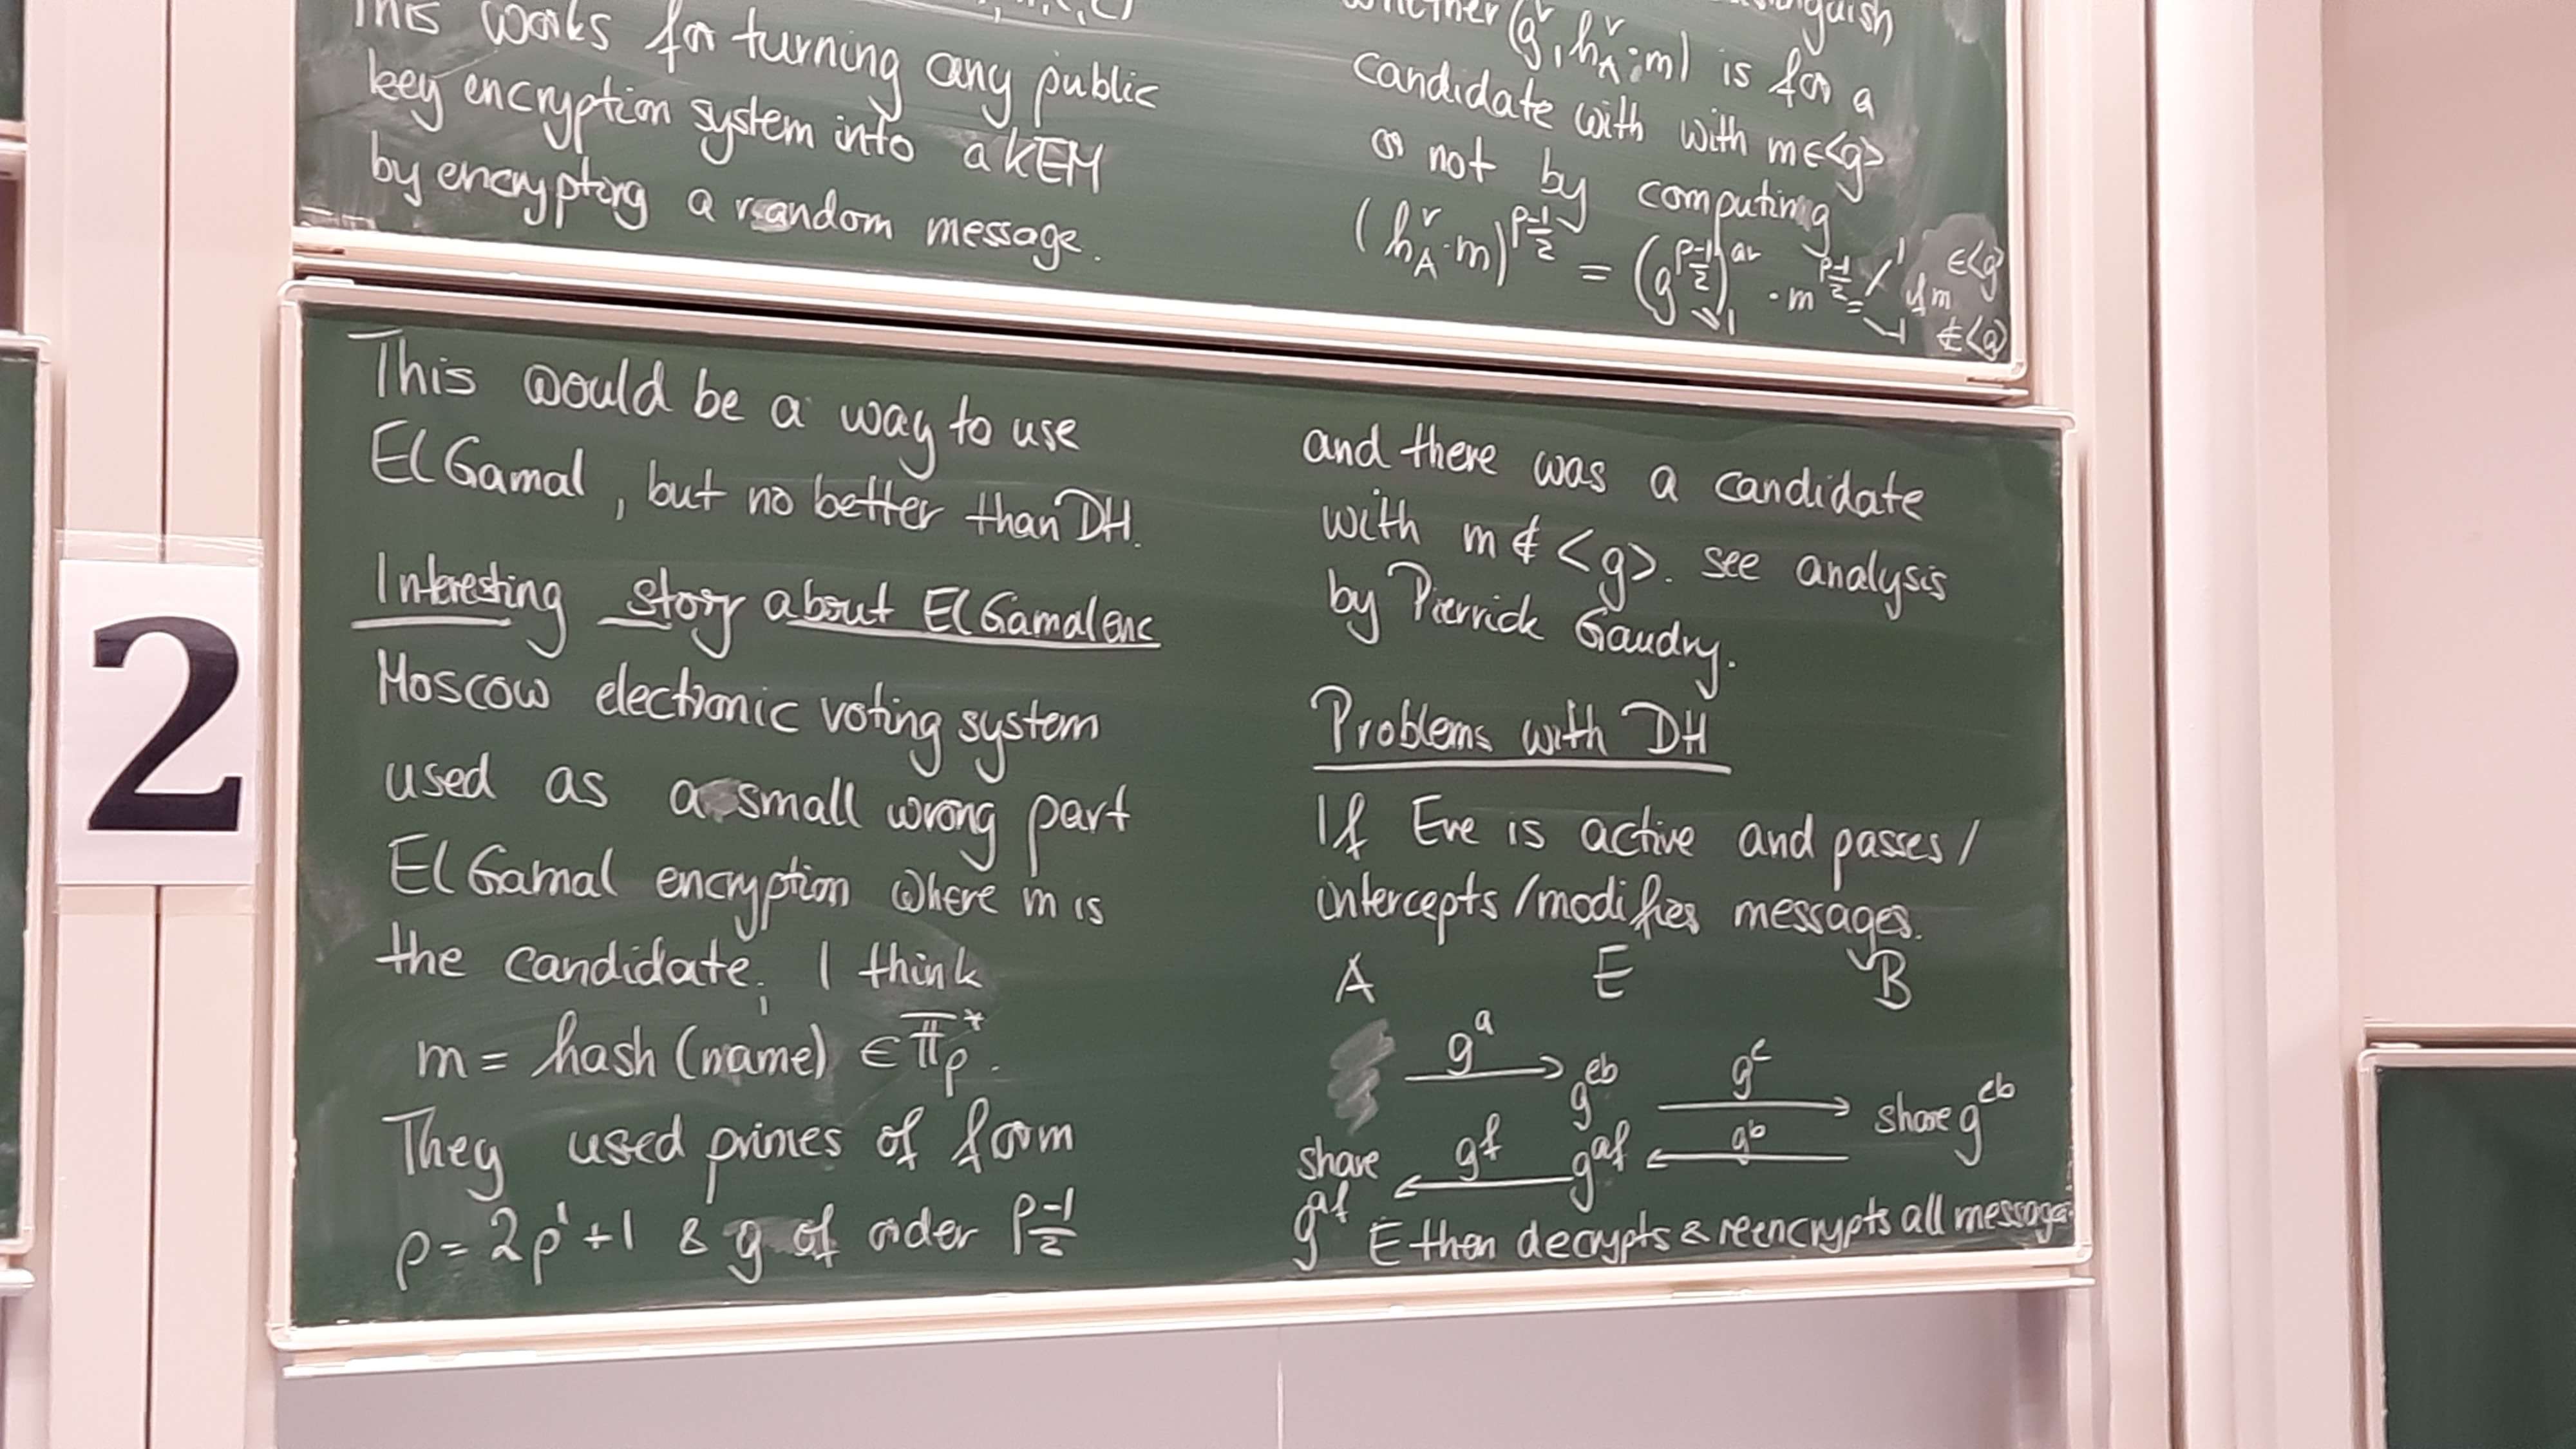 This works for turning any public
key encryption system into a KEM
by encrypting a random message.
whether (g^r, h_A^r·m) is for a
candidate with with m∈<g>
or not by computing
(h_A^r·m)^{\frac{p-1}{2}} = (g^{\frac{p-1}{2}})^{ar} · m^{\frac{p-1}{2}} = 1 if m ∈<g>
↘1 -1 ∉<g>
2
This would be a way to use
ElGamal, but no better than DH.
Interesting story about ElGamal enc
Moscow electronic voting system
used as a small wrong part
ElGamal encryption where m is
the candidate; I think
m = hash (name) ∈ 𝔽_p^*.
They used primes of form
p = 2p'+1 & g of order \frac{p-1}{2}
and there was a candidate
with m ∉ <g>. see analysis
by Pierrick Gaudry.
Problems with DH
If Eve is active and passes /
intercepts / modifies messages.
A E B
g^a g^{eb} g^e share g^{eb}
share g^f g^{af} g^b
g^{af} E then decrypts & reencrypts all message